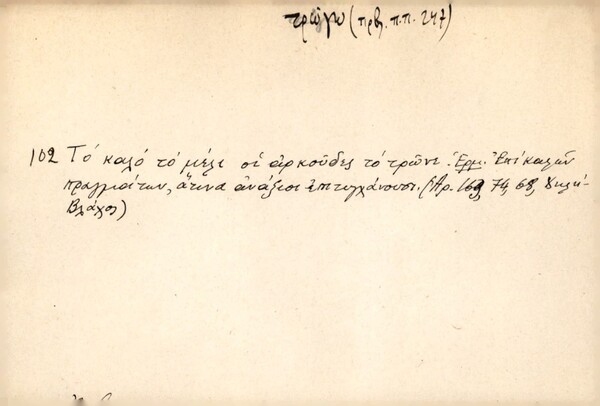 τρώγω (πρβ. π.π. 247)
102 Τό καλό τό μέλι οἱ ἀρκοῦδες τό τρῶνε. Ἑρμ. Ἐπί καλῶν
πραγμάτων, ἅτινα ἀνάξιοι ἐπιτυγχάνουσι. (Ἀρ. 74, 68,
Βλάχος)